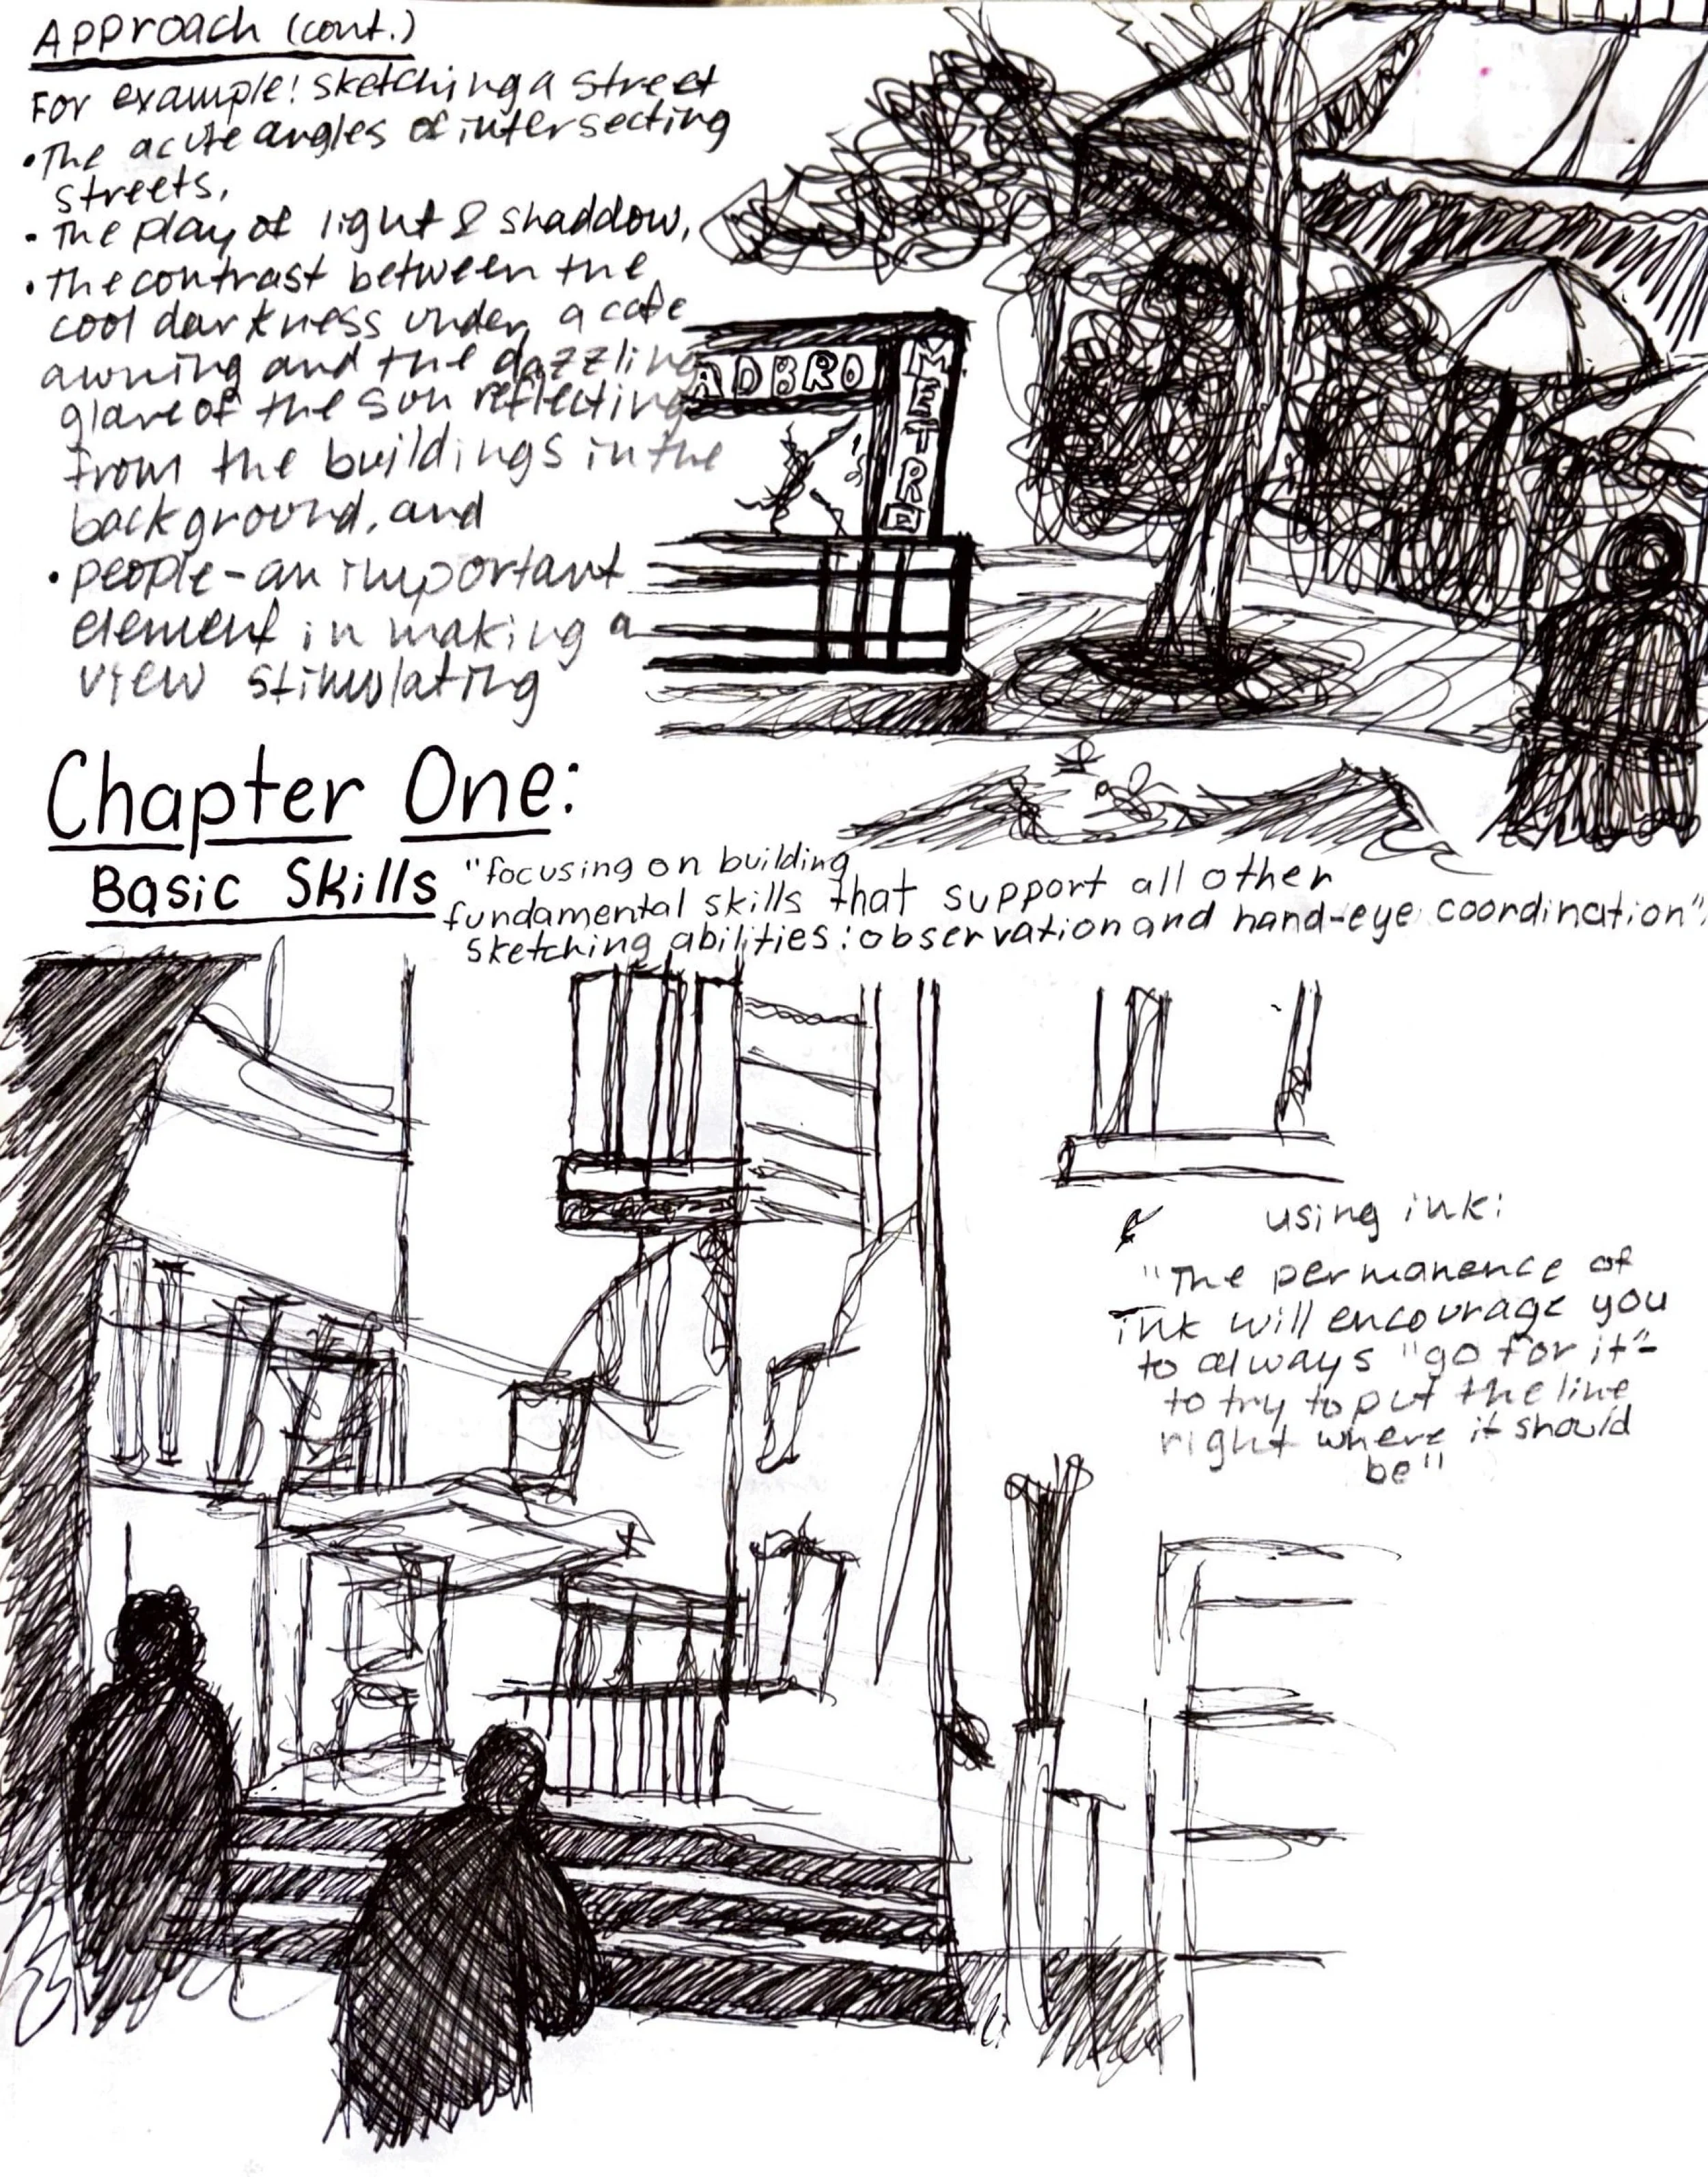 Approach (cont.)
For example: sketching a street
• The acute angles of intersecting
streets,
• The play of light & shaddow,
• the contrast between the
cool darkness under a cafe
awning and the dazzling
glare of the sun reflecting
from the buildings in the
background, and
• people - an important
element in making a
view stimulating
ADBRO
METRO
Chapter One:
Basic Skills
"focusing on building
fundamental skills that support all other
sketching abilities: observation and hand-eye coordination"
using ink:
"The permanence of
ink will encourage you
to always "go for it" -
to try to put the line
right where it should
be"